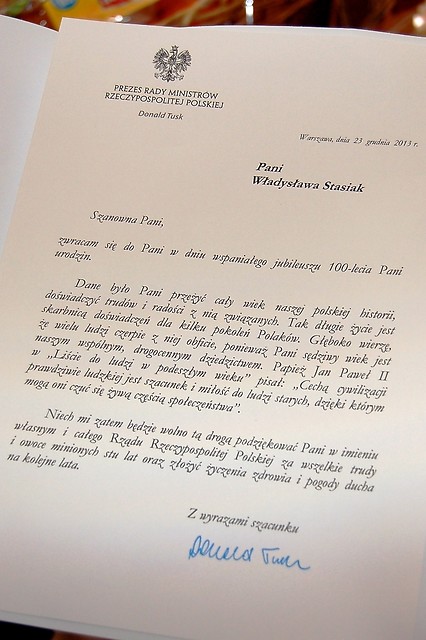 PREZES RADY MINISTRÓW
RZECZYPOSPOLITEJ POLSKIEJ
Donald Tusk
Warszawa, dnia 23 grudnia 2013 r.
Pani
Władysława Stasiak
Szanowna Pani,
zwracam się do Pani w dniu wspaniałego jubileuszu 100-lecia Pani
urodzin.
Dane było Pani przeżyć cały wiek naszej polskiej historii,
doświadczyć trudów i radości z nią związanych. Tak długie życie jest
skarbnicą doświadczeń dla kilku pokoleń Polaków. Głęboko wierzę,
że wielu ludzi czerpie z niej obficie, ponieważ Pani sędziwy wiek jest
naszym wspólnym, drogocennym dziedzictwem. Papież Jan Paweł II
w „Liście do ludzi w podeszłym wieku" pisał: „Cechą cywilizacji
prawdziwie ludzkiej jest szacunek i miłość do ludzi starych, dzięki którym
mogą oni czuć się żywą częścią społeczeństwa".
Niech mi zatem będzie wolno tą drogą podziękować Pani w imieniu
własnym i całego Rządu Rzeczypospolitej Polskiej za wszelkie trudy
i owoce minionych stu lat oraz złożyć życzenia zdrowia i pogody ducha
na kolejne lata.
Z wyrazami szacunku
Donald Tusk